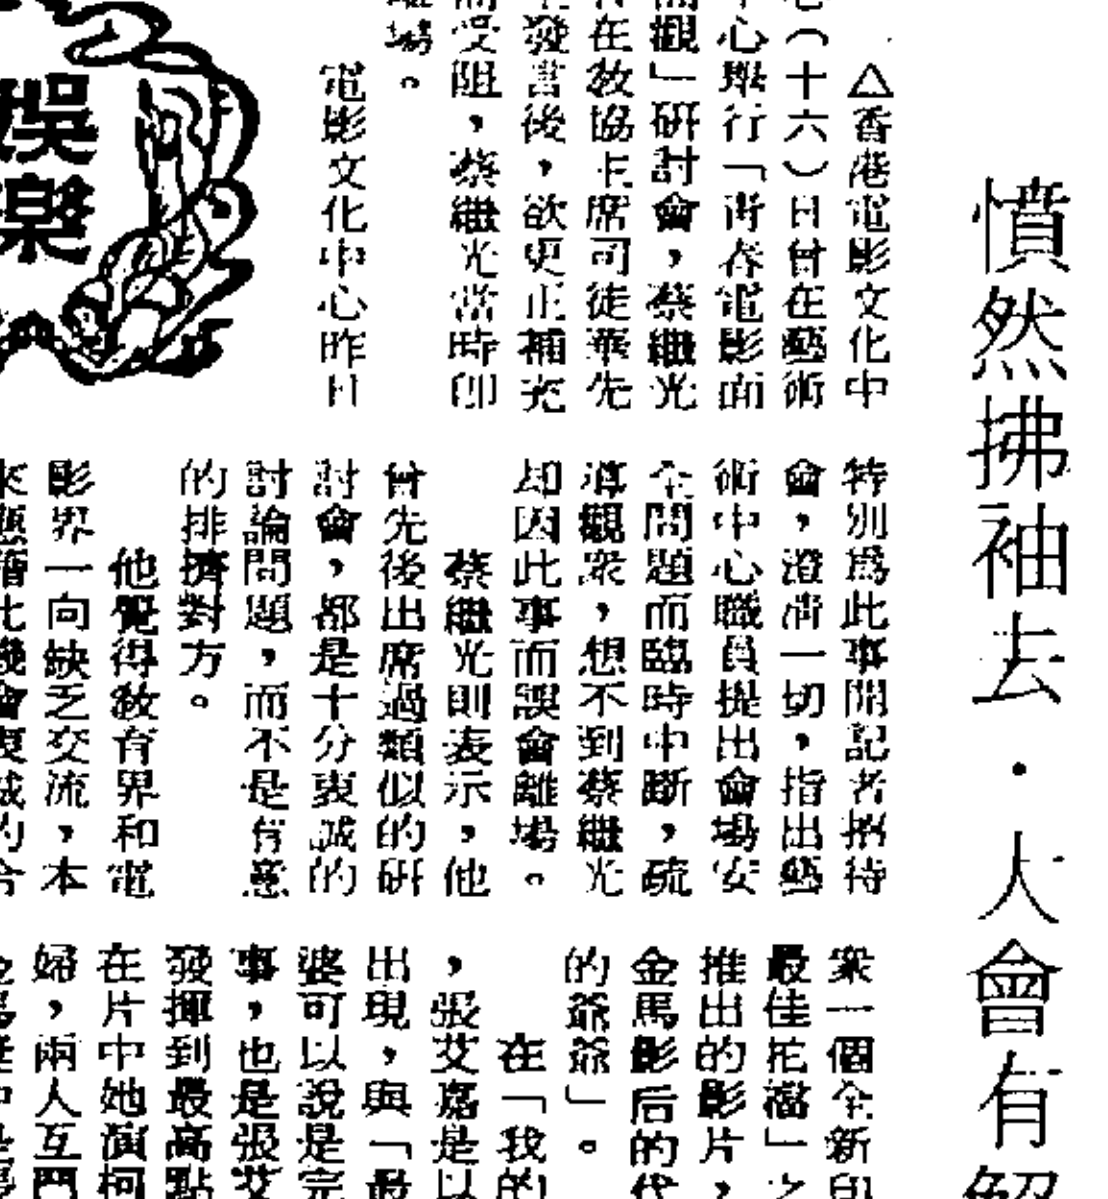 憤然拂袖去·大會有解
△香港電影文化中
心(十六)日曾在藝術
中心舉行「青春電影面
面觀」研討會，蔡繼光
在教協主席司徒華先
生發言後，欲更正補充
而受阻，蔡繼光當時即
離場。
電影文化中心昨日
特別為此事開記者招待
會，澄清一切，指出藝
術中心職員提出會場安
全問題而臨時中斷，疏
導觀眾，想不到蔡繼光
却因此事而誤會離場。
蔡繼光則表示，他
曾先後出席過類似的研
討會，都是十分衷誠的
討論問題，而不是有意
的排擠對方。
他覺得教育界和電
影界一向缺乏交流，本
來應藉此機會衷誠的合
娛樂
衆一個全新印
最佳拍檔」之
推出的影片，
金馬影后的代
的爺爺」。
在「我的
，張艾嘉是以
出現，與「最
婆可以說是完
事，也是張艾
發揮到最高點
在片中她演柯
婦，兩人互鬥